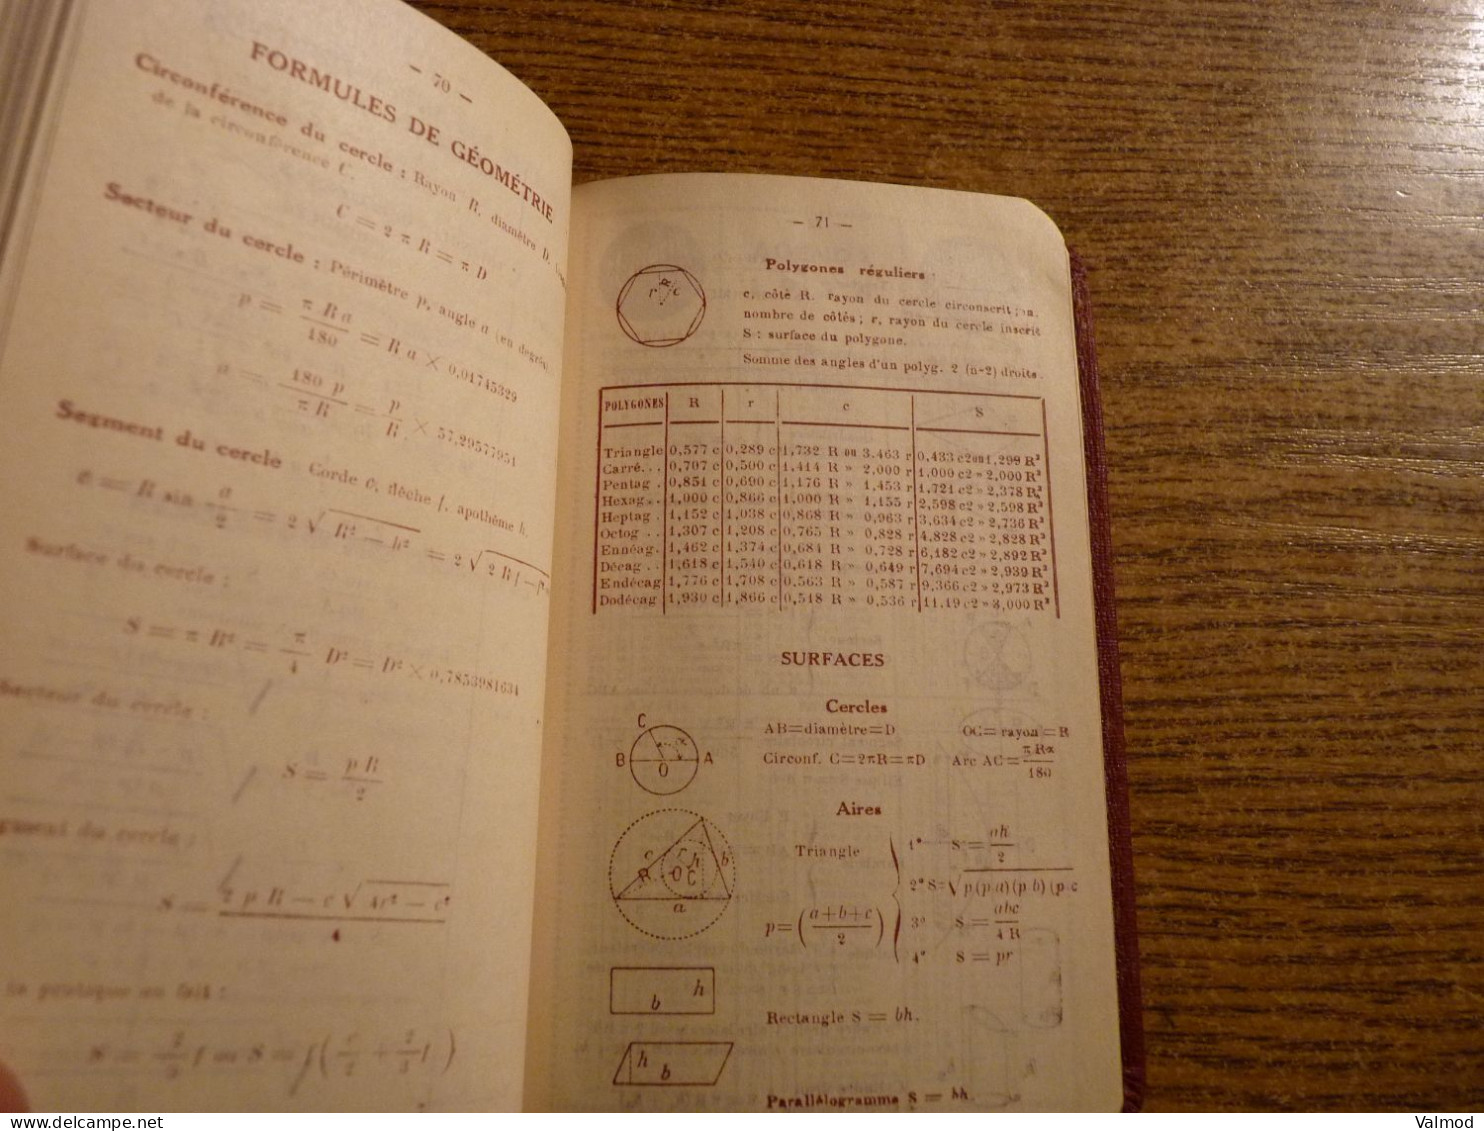 — 70 —
FORMULES DE GÉOMÉTRIE
Circonférence du cercle : Rayon R, diamètre D,
de la circonférence C.
C = 2 π R = π D
Secteur du cercle : Périmètre p, angle a (en degrés)
p = π R a / 180 = R a × 0,01745329
a = 180 p / π R = p / R × 57,29577951
Segment du cercle : Corde c, flèche f, apothème h.
c = R sin a / 2 = 2 √ R² — h² = 2 √ 2 R f — f²
Surface du cercle :
S = π R² = π / 4 D² = D² × 0,7853981634
Secteur du cercle :
S = p R / 2
gment du cercle :
S = 2 p R — c √ 4r² — c² / 4
la pratique on fait :
— 71 —
Polygones réguliers :
c, côté R. rayon du cercle circonscrit ; n,
nombre de côtés ; r, rayon du cercle inscrit
S : surface du polygone.
Somme des angles d'un polyg. 2 (n-2) droits.
R r c
POLYGONES R r c S
Triangle 0,577 c 0,289 c 1,732 R ou 3.463 r 0,433 c2 ou 1,299 R²
Carré. . . 0,707 c 0,500 c 1.414 R » 2,000 r 1.000 c2 » 2,000 R²
Pentag . 0,851 c 0,690 c 1,176 R » 1,453 r 1,721 c2 » 2,378 R²
Hexag. . . 1,000 c 0,866 c 1.000 R » 1,155 r 2,598 c2 » 2,598 R²
Heptag . 1,152 c 1,038 c 0,868 R » 0,963 r 3,634 c2 » 2,736 R²
Octog . . 1,307 c 1,208 c 0,765 R » 0,828 r 4.828 c2 » 2,828 R²
Ennéag. . 1,462 c 1,374 c 0,684 R » 0.728 r 6,182 c2 » 2,892 R²
Décag . . 1,618 c 1,540 c 0,618 R » 0,649 r 7,694 c2 » 2,939 R²
Endécag 1,776 c 1,708 c 0.563 R » 0,587 r 9,366 c2 » 2,973 R²
Dodécag 1,930 c 1,866 c 0,518 R » 0,536 r 11.19 c2 » 3,000 R²
SURFACES
Cercles
C B O A
AB=diamètre=D OC= rayon =R
Circonf. C=2πR=πD Arc AC= π Rα / 180
Aires
c r h b R O C a
Triangle
p= ( a+b+c / 2 )
1° S = ah / 2
2° S=√ p (p a) (p b) (p c
3° S = abc / 4 R
4° S = pr
b h
Rectangle S = bh.
h b
Parallélogramme S = bh.
www.delcampe.net
Valmod